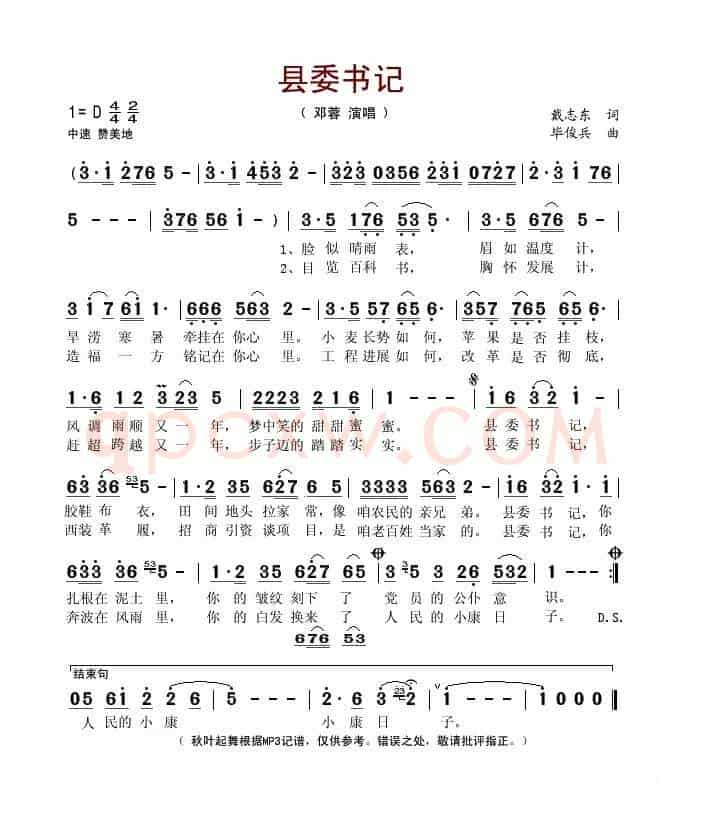 县委书记
1= D 4/4 2/4
（ 邓蓉 演唱 ）
戴志东 词
中速 赞美地
毕俊兵 曲
( 3 · 1 2 7 6 5 - | 3 · 1 4 5 3 2 - | 3 2 3 0 3 5 6 2 3 2 1 0 7 2 7 | 2 · 3 1 7 6
5 - - - | 3 7 6 5 6 1 - ) | 3 · 5 1 7 6 5 3 5 · | 3 · 5 6 7 6 5 - |
1、脸 似 晴雨 表， 眉 如 温度 计，
2、目 览 百科 书， 胸 怀 发展 计，
3 1 7 6 1 1 · | 6 6 6 5 6 3 2 - | 3 · 5 5 7 6 5 6 · | 3 5 7 7 6 5 6 5 6 ·
旱 涝 寒 暑 牵挂在 你心 里。 小 麦 长势 如 何， 苹 果 是 否 挂 枝，
造 福 一 方 铭记在 你心 里。 工 程 进展 如 何， 改 革 是 否 彻 底，
1 · 6 1 2 3 2 3 5 | 2 2 2 3 2 1 6 2 | 1 - - - | 1 6 3 2 1
风 调 雨 顺 又 一 年， 梦中笑的 甜甜 蜜 蜜。 县 委 书 记，
赶 超 跨 越 又 一 年， 步子迈的 踏踏 实 实。 县 委 书 记，
6 3 3 6 53 5 - | 1 · 2 3 5 6 2 7 6 5 | 3 3 3 3 3 5 3 2 | 1 6 3 2 1 · 6
胶鞋 布 衣， 田 间 地头 拉家 常，像 咱农民的 亲兄 弟。 县委 书 记，你
西装 革 履， 招 商 引资 谈项 目，是 咱老百姓 当家 的。 县委 书 记，你
6 3 3 3 6 53 5 - | 1 · 2 3 5 6 2 7 6 5 | 3 3 5 3 2 6 5 3 2 | 1 - - - :||
扎根在 泥土 里， 你 的 皱纹 刻下 了 党 员 的公仆 意 识。
奔波在 风雨 里， 你 的 白发 换来 了 人 民 的小康 日 子。 D.S.
6 7 6 5 3
结束句
0 5 6 1 2 2 6 | 5 - - - | 2 · 6 3 23 2 | 1 - - - | 1 0 0 0 ||
人 民的 小 康 小 康 日 子。
（ 秋叶起舞根据MP3记谱，仅供参考。错误之处，敬请批评指正。）
qpcxw.COM